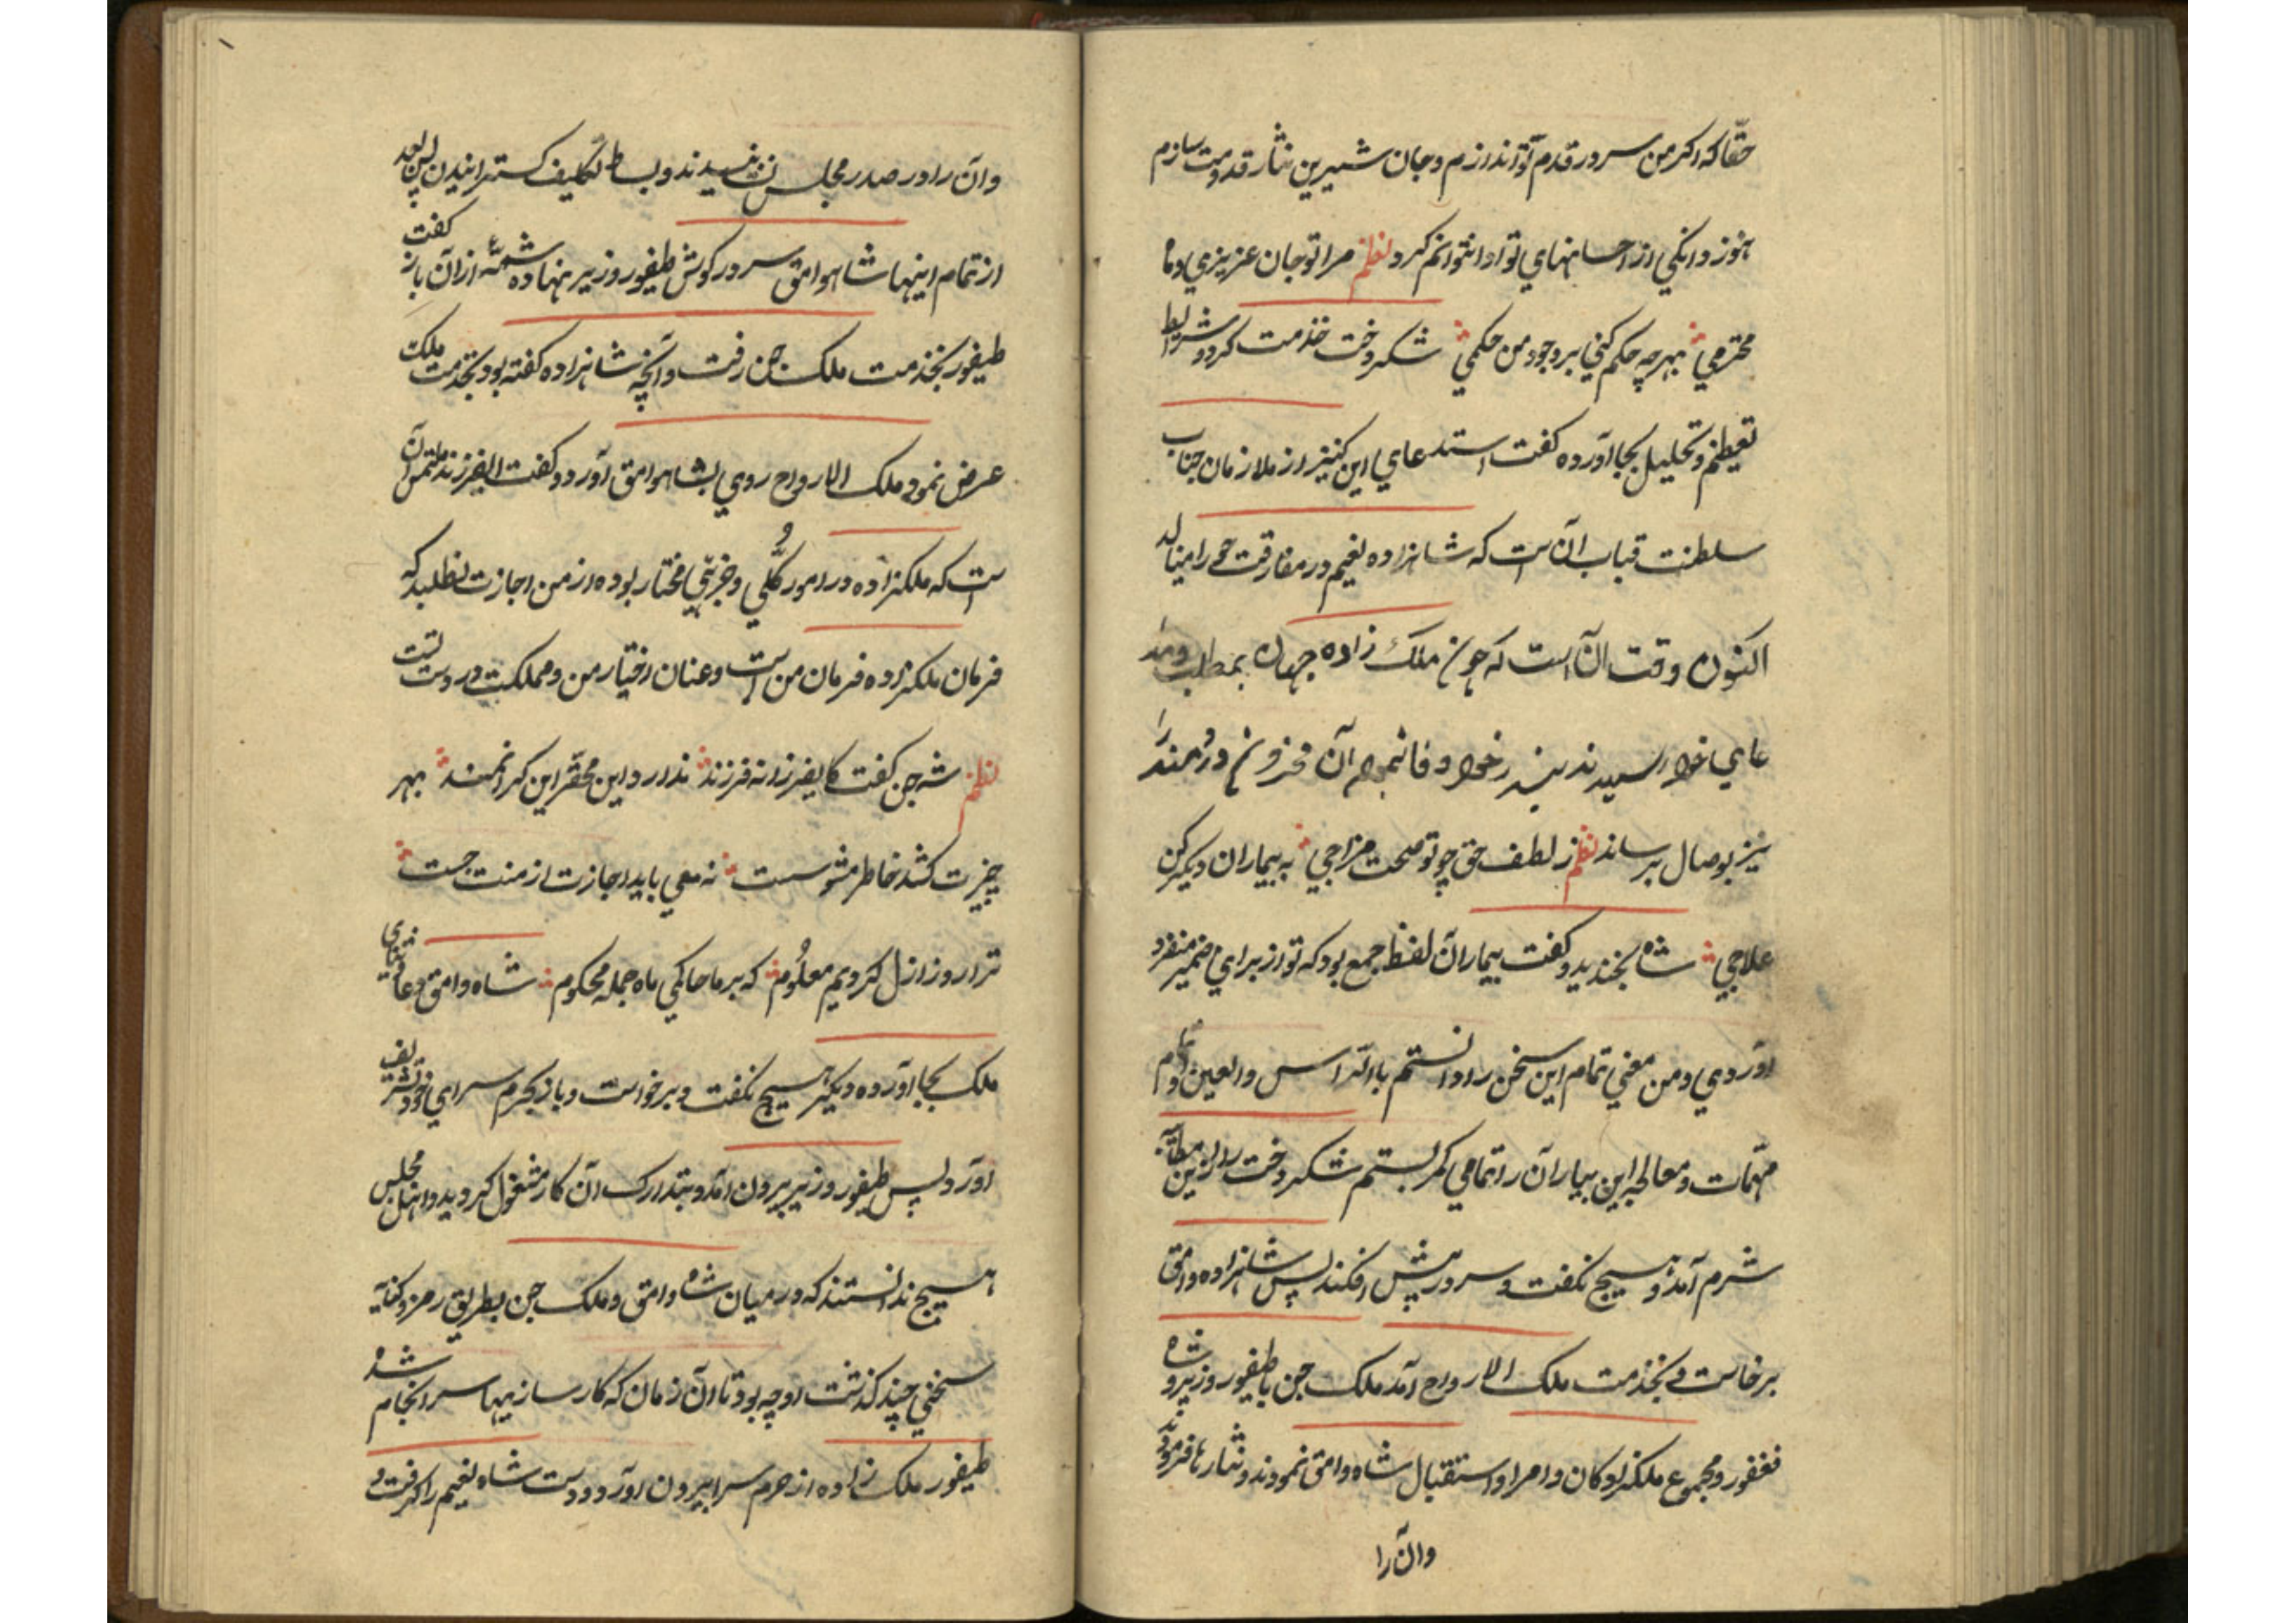 حقّا که اکر من سر در قدم تو اندازم و جان شیرین نثار قدومت سازم
هنوز دانکی از احسانهاي تو ادا نتوانم کرد نظم مرا تو جان عزیزي و ما
محترمي بهرچه حکم کني بر وجود من حکمي شکردخت خدمت کرد و شرایط
تعظیم و تجلیل بجا آورده کفت استدعاي این کنیز از ملازمان جناب
سلطنت قباب آن است که شاهزاده نعیم در مفارقت حي را مینالد
اکنون وقت آن است که چون ملک زاده جهان بمطلب و مد
عاي خود رسیدند نیز رخود وفا نموده آن محزون دردمند را
نیز بوصال برساند نظم ز لطف حق چو تو صحت مزاجي به بیماران دیکر کن
علاجي شاه بخندید و کفت بیماران لفظ جمع بود که تو از براي ضمیر منفرد
آوردي و من معني تمام این سخن را دانستم باالراس والعین تمام
مهمّات و معالجه این بیماران را تمامي کمر بستم شکردخت را ازین مطایبه
شرم آمد و هیچ نکفت و سر در پیش افکند پس شاهزاده وامق
برخاست و بخدمت ملک الارواح آمد ملک جن با طیفور وزیر و شاه
فغفور و مجموع ملکزادکان و امرا و استقبال شاه وامق نمودند و نثارها فرمودند
وآن را
وآن را در صدر مجلس نشانیدند و بساط تکلیف کسترانیدن پس بعد
از تمام اینها شاه وامق سر در کوش طیفور وزیر نهاده شمّه از آن باز کفت
طیفور بخدمت ملک جن رفت و آنچه شاهزاده کفته بود بخدمت ملک
عرض نمود ملک الارواح روي بشاه وامق آورد و کفت ایفرزند ملتمس آن
است که ملکزاده در امور کلّي و جزئي مختار بوده از من اجازت نطلبد که
فرمان ملکزاده فرمان من است و عنان اختیار من و مملکت در دست تست
نظم شه جن کفت کایفرزانه فرزند ندارد این محقّر این کرانمند بهر
چیزت کشد خاطر مشو سست نه معي باید اجازت از منت جست
ترا روز ازل کردیم معلُوم که بر ما حاکمي ما جمله محکوم شاه وامق دعا و ثناي
ملک بجا آورده دیکر هیچ نکفت و برخواست و باز بحرم سراي خود تشریف
آورد پس طیفور وزیر بیرون آمد و بتدارک آن کار مشغول کردید و اهل مجلس
هیچ ندانستند که در میان شاه وامق و ملک جن بطریق رمز و کنایه
سخني چند کذشت او چه بود تا آن زمان که کار سازیها سرانجام شده
طیفور ملک زاده از حرم سرا بیرون آورد و دست شاه نعیم را کرفت و